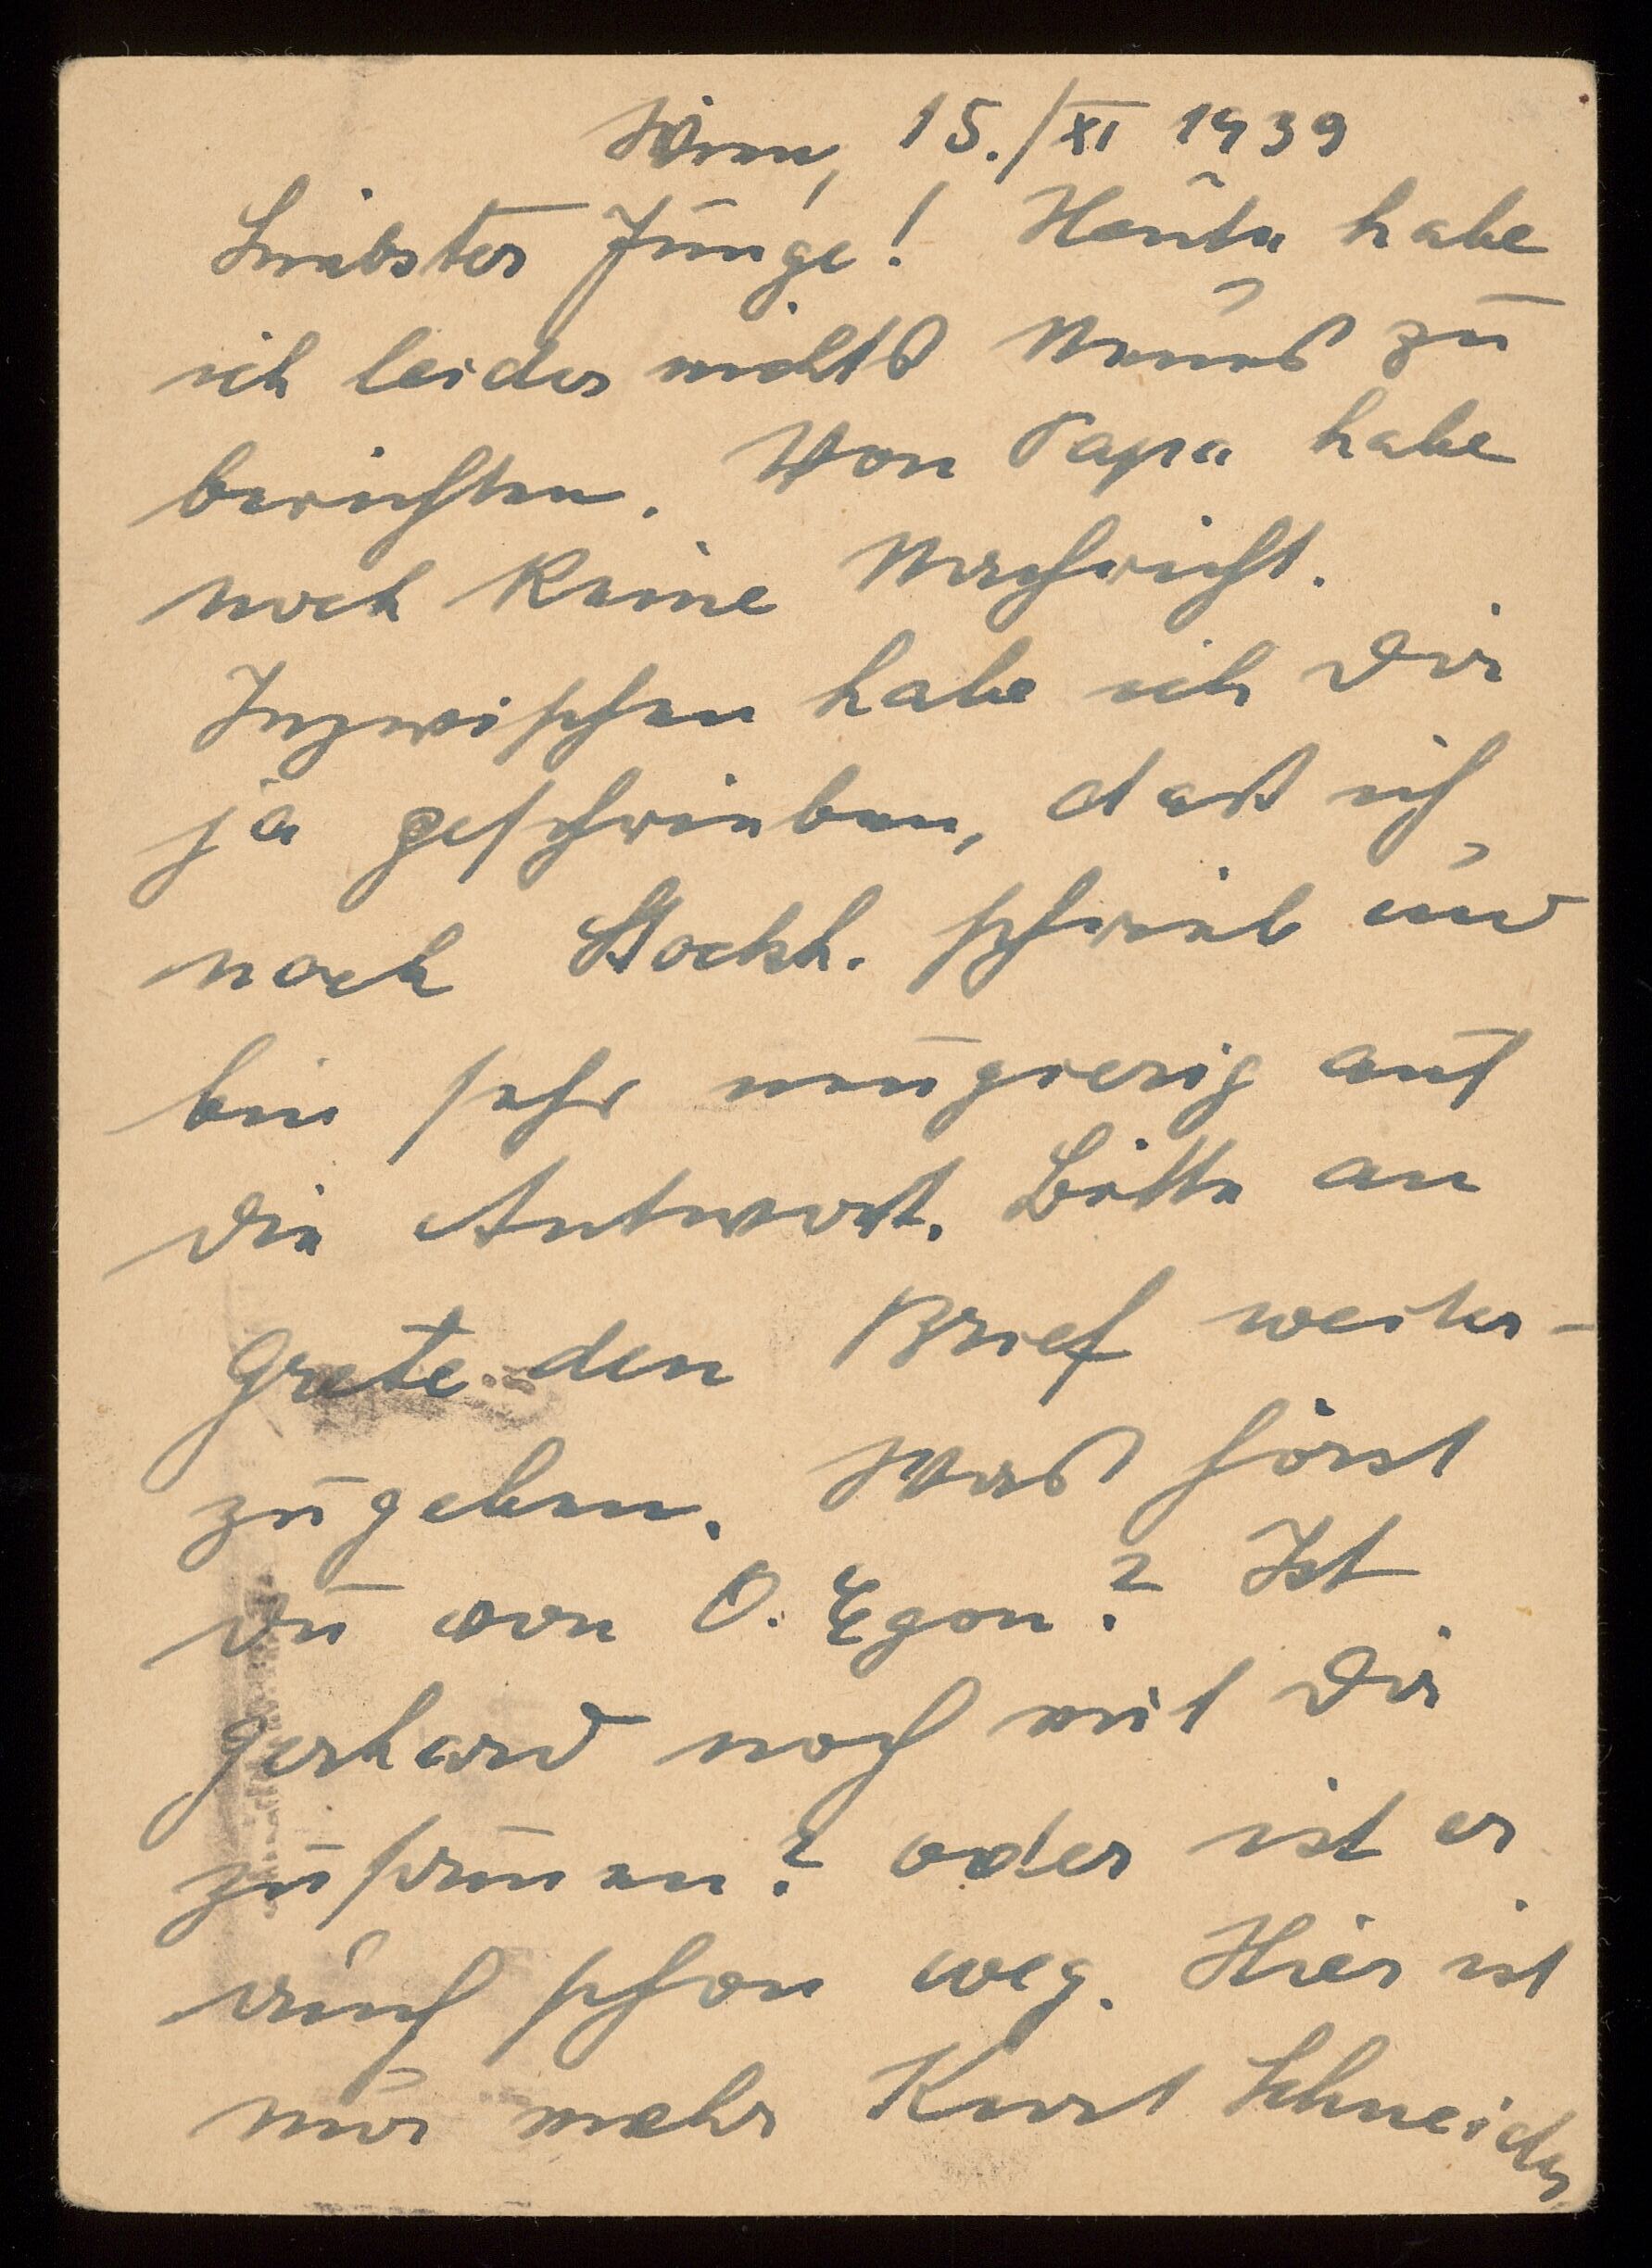 Wien, 15./XI 1939
Liebster Junge! Heute habe
ich leider nichts Neues zu
berichten. Von Papa habe
noch keine Nachricht.
Inzwischen habe ich Dir
ja geschrieben, daß ich
nach Stockh. schrieb und
bin sehr neugierig auf
die Antwort. Bitte an
Grete den Brief weiter-
zugeben. Was hörst
Du von O. Egon? Ist
Gerhard noch mit Dir
zusammen? oder ist er
auch schon weg. Hier ist
nur mehr Kurt Schneider